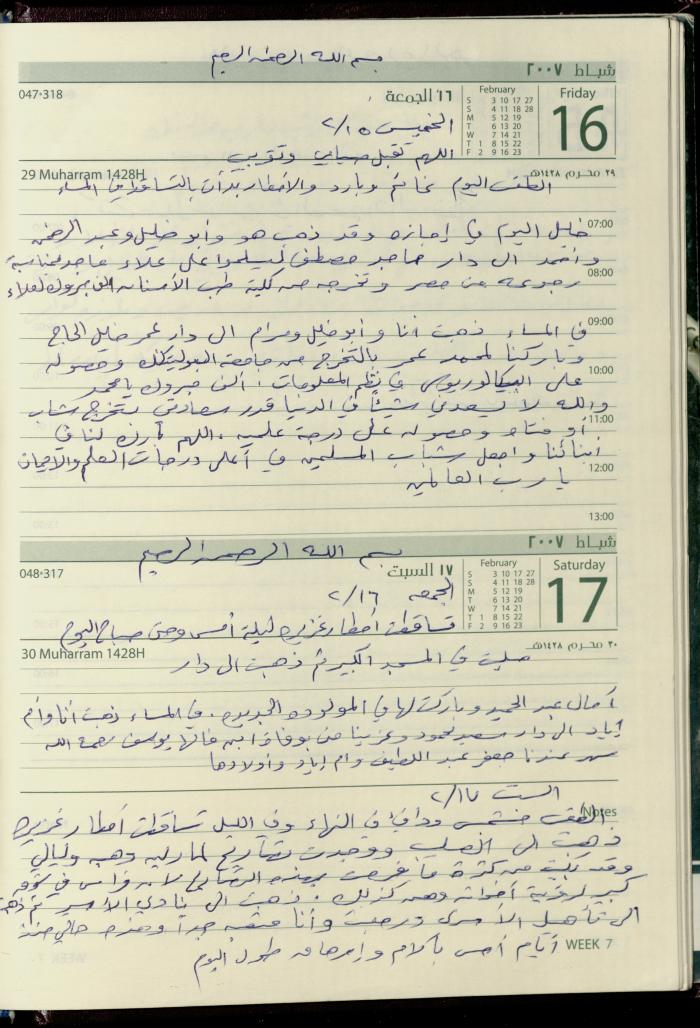 بسم الله الرحمن الرحيم
شباط ٢٠٠٧
047-318
١٦ الجمعة
February
S 3 10 17 27
S 4 11 18 28
M 5 12 19
T 6 13 20
W 7 14 21
T 1 8 15 22
F 2 9 16 23
Friday
16
الخميس ٢/١٥
اللهم تقبل صيامي وتوبتي
29 Muharram 1428H
٢٩ محرم ١٤٢٨هـ
الطقس اليوم غائم وبارد والأمطار بدأت بالتساقط في المساء
07:00
خليل اليوم في إجازه وقد ذهب هو وأبو خليل وعبد الرحمن
وأحمد الى دار ماجد مصطفى ليسلموا على علاء ماجد بمناسبة
08:00
رجوعه من مصر وتخرجه من كلية طب الأسنان الف مبروك لعلاء
09:00
في المساء ذهبت أنا وأبو خليل ومرام الى دار عمر خليل الحاج
وباركنا لمحمد عمر بالتخرج من جامعة البوليتكنك وحصوله
10:00
على البيكالوريوس في نظم المعلومات، ألف مبروك يا محمد
والله لا يسعدني شيئاً في الدنيا قدر سعادتي بتخرج شاب
11:00
أو فتاه وحصوله على درجة علميه، اللهم بارك لنا في
أبنائنا واجعل شباب المسلمين في أعلى درجات العلم والايمان
12:00
يا رب العالمين
13:00
شباط ٢٠٠٧
بسم الله الرحمن الرحيم
048-317
١٧ السبت
February
S 3 10 17 27
S 4 11 18 28
M 5 12 19
T 6 13 20
W 7 14 21
T 1 8 15 22
F 2 9 16 23
Saturday
17
الجمعه ٢/١٦
تساقطت أمطار غزيره ليلة أمس وحتى صباح اليوم
30 Muharram 1428H
٣٠ محرم ١٤٢٨هـ
صليت في المسجد الكبير ثم ذهبت الى دار
آمال عبد الحميد وباركت لها في المولوده الجديده، في المساء ذهبت أنا وأم
إياد الى دار سعيد محمود وعزينا بوفاة ابن خالها يوسف رحمة الله
سهر عندنا جعفر عبد اللطيف وام إياد وأولادها
السبت ٢/١٧
Notes
الطقس مشمس ودافئ في النهار وفي الليل تساقطت أمطار غزيره
ذهبت الى الصليب ووجدت تصاريح لماريه وهبه وليالي
وقد بكيت من كثرة ما فرحت بهذه التصاريح لأن فراس في شوق
كبير لرؤية أخواته وهن كذلك، ذهبت الى نادي الأسير ثم ذهبت
الى تأهيل الأسرى ورجعت وأنا متعبه جداً وهذه حالي منذ
أيام أحس بآلام وإرهاق طول اليوم
WEEK 7